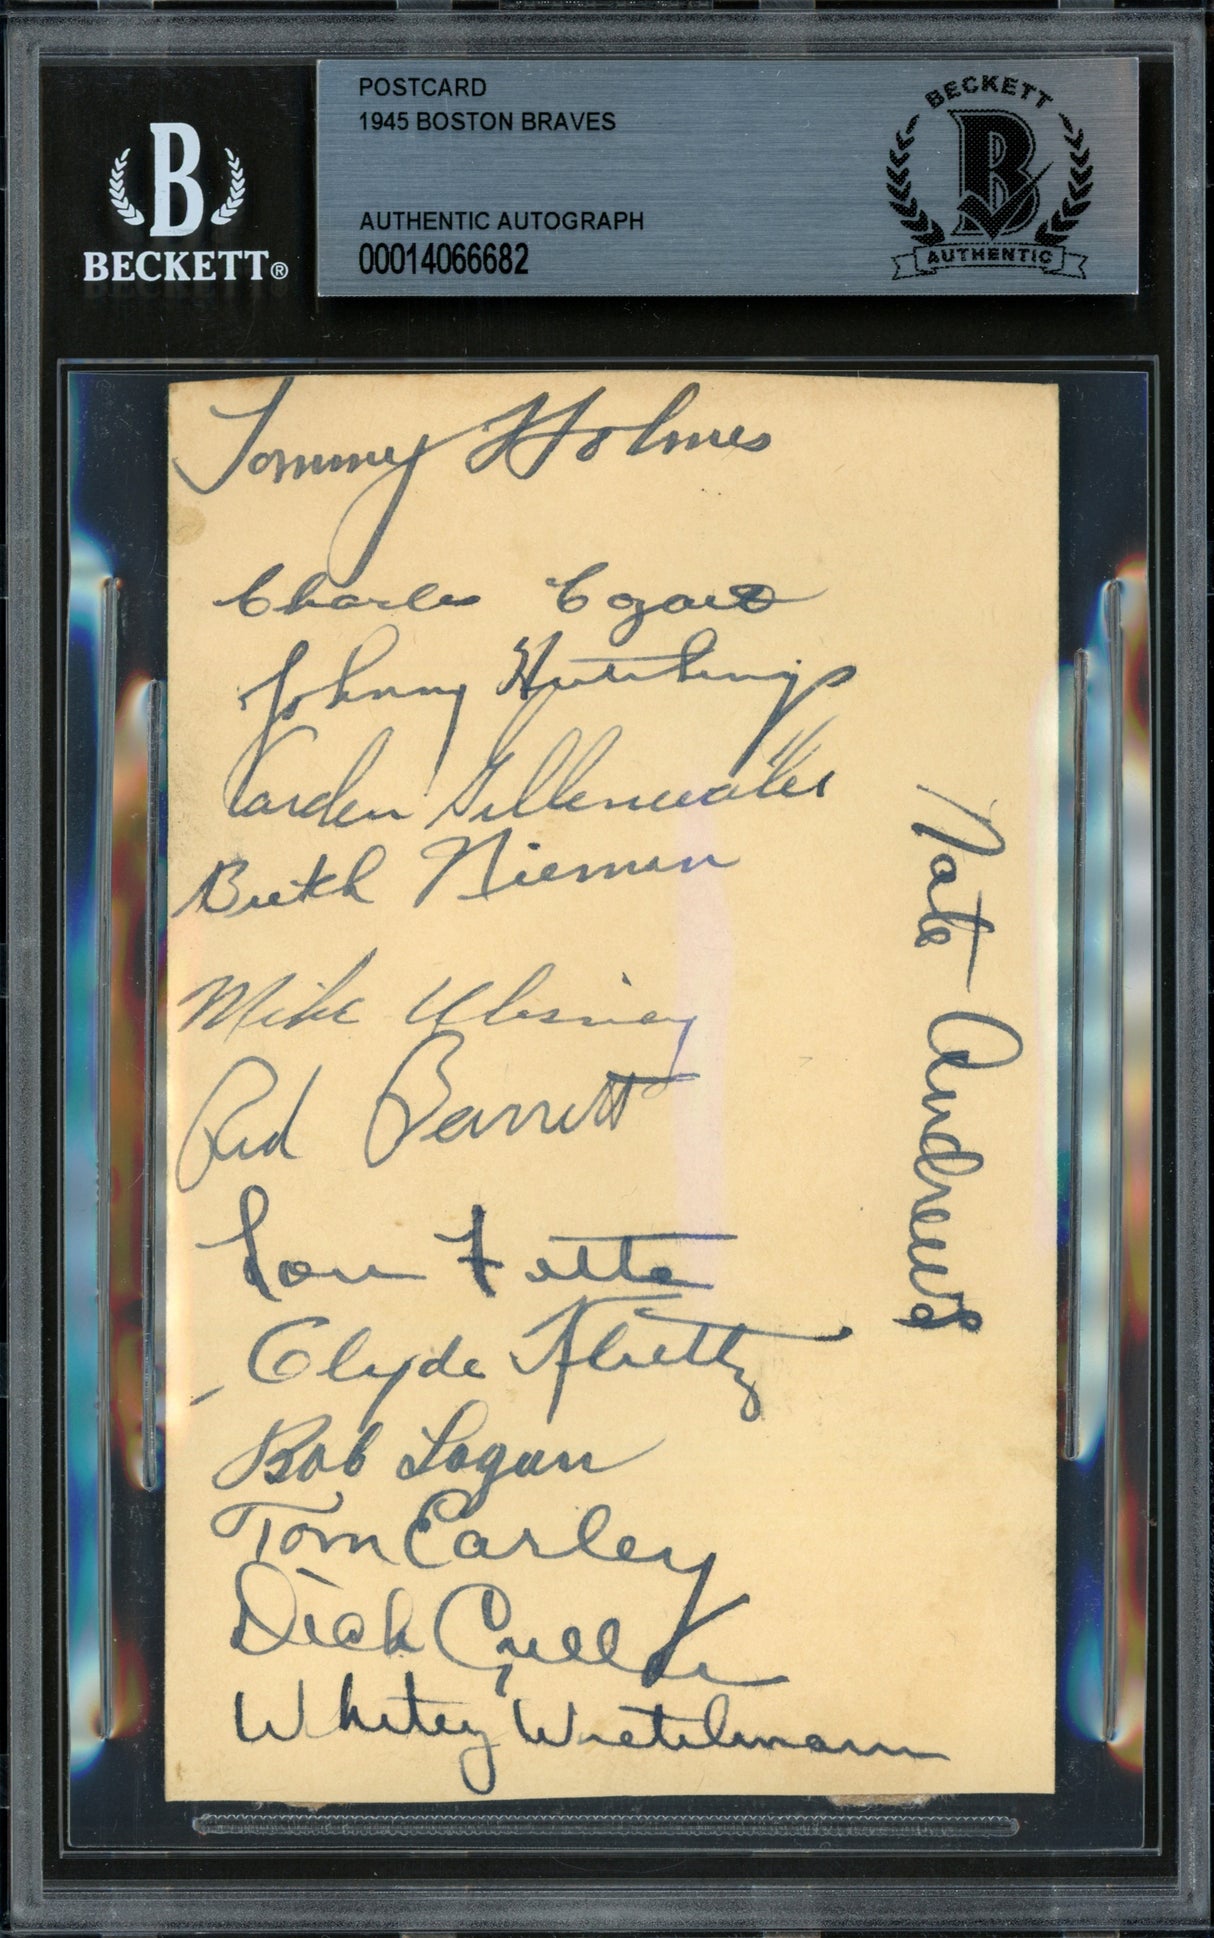 BECKETT®
POSTCARD
1945 BOSTON BRAVES
AUTHENTIC AUTOGRAPH
00014066682
BECKETT
B
AUTHENTIC
Tommy Holmes
Charles Cozart
Johnny Hutchings
Carden Gillenwater
Butch Nieman
Mike Ulisney
Red Barrett
Lou Fette
Clyde Kluttz
Bob Logan
Tom Earley
Dick Culler
Whitey Wietelmann
Nate Andrews